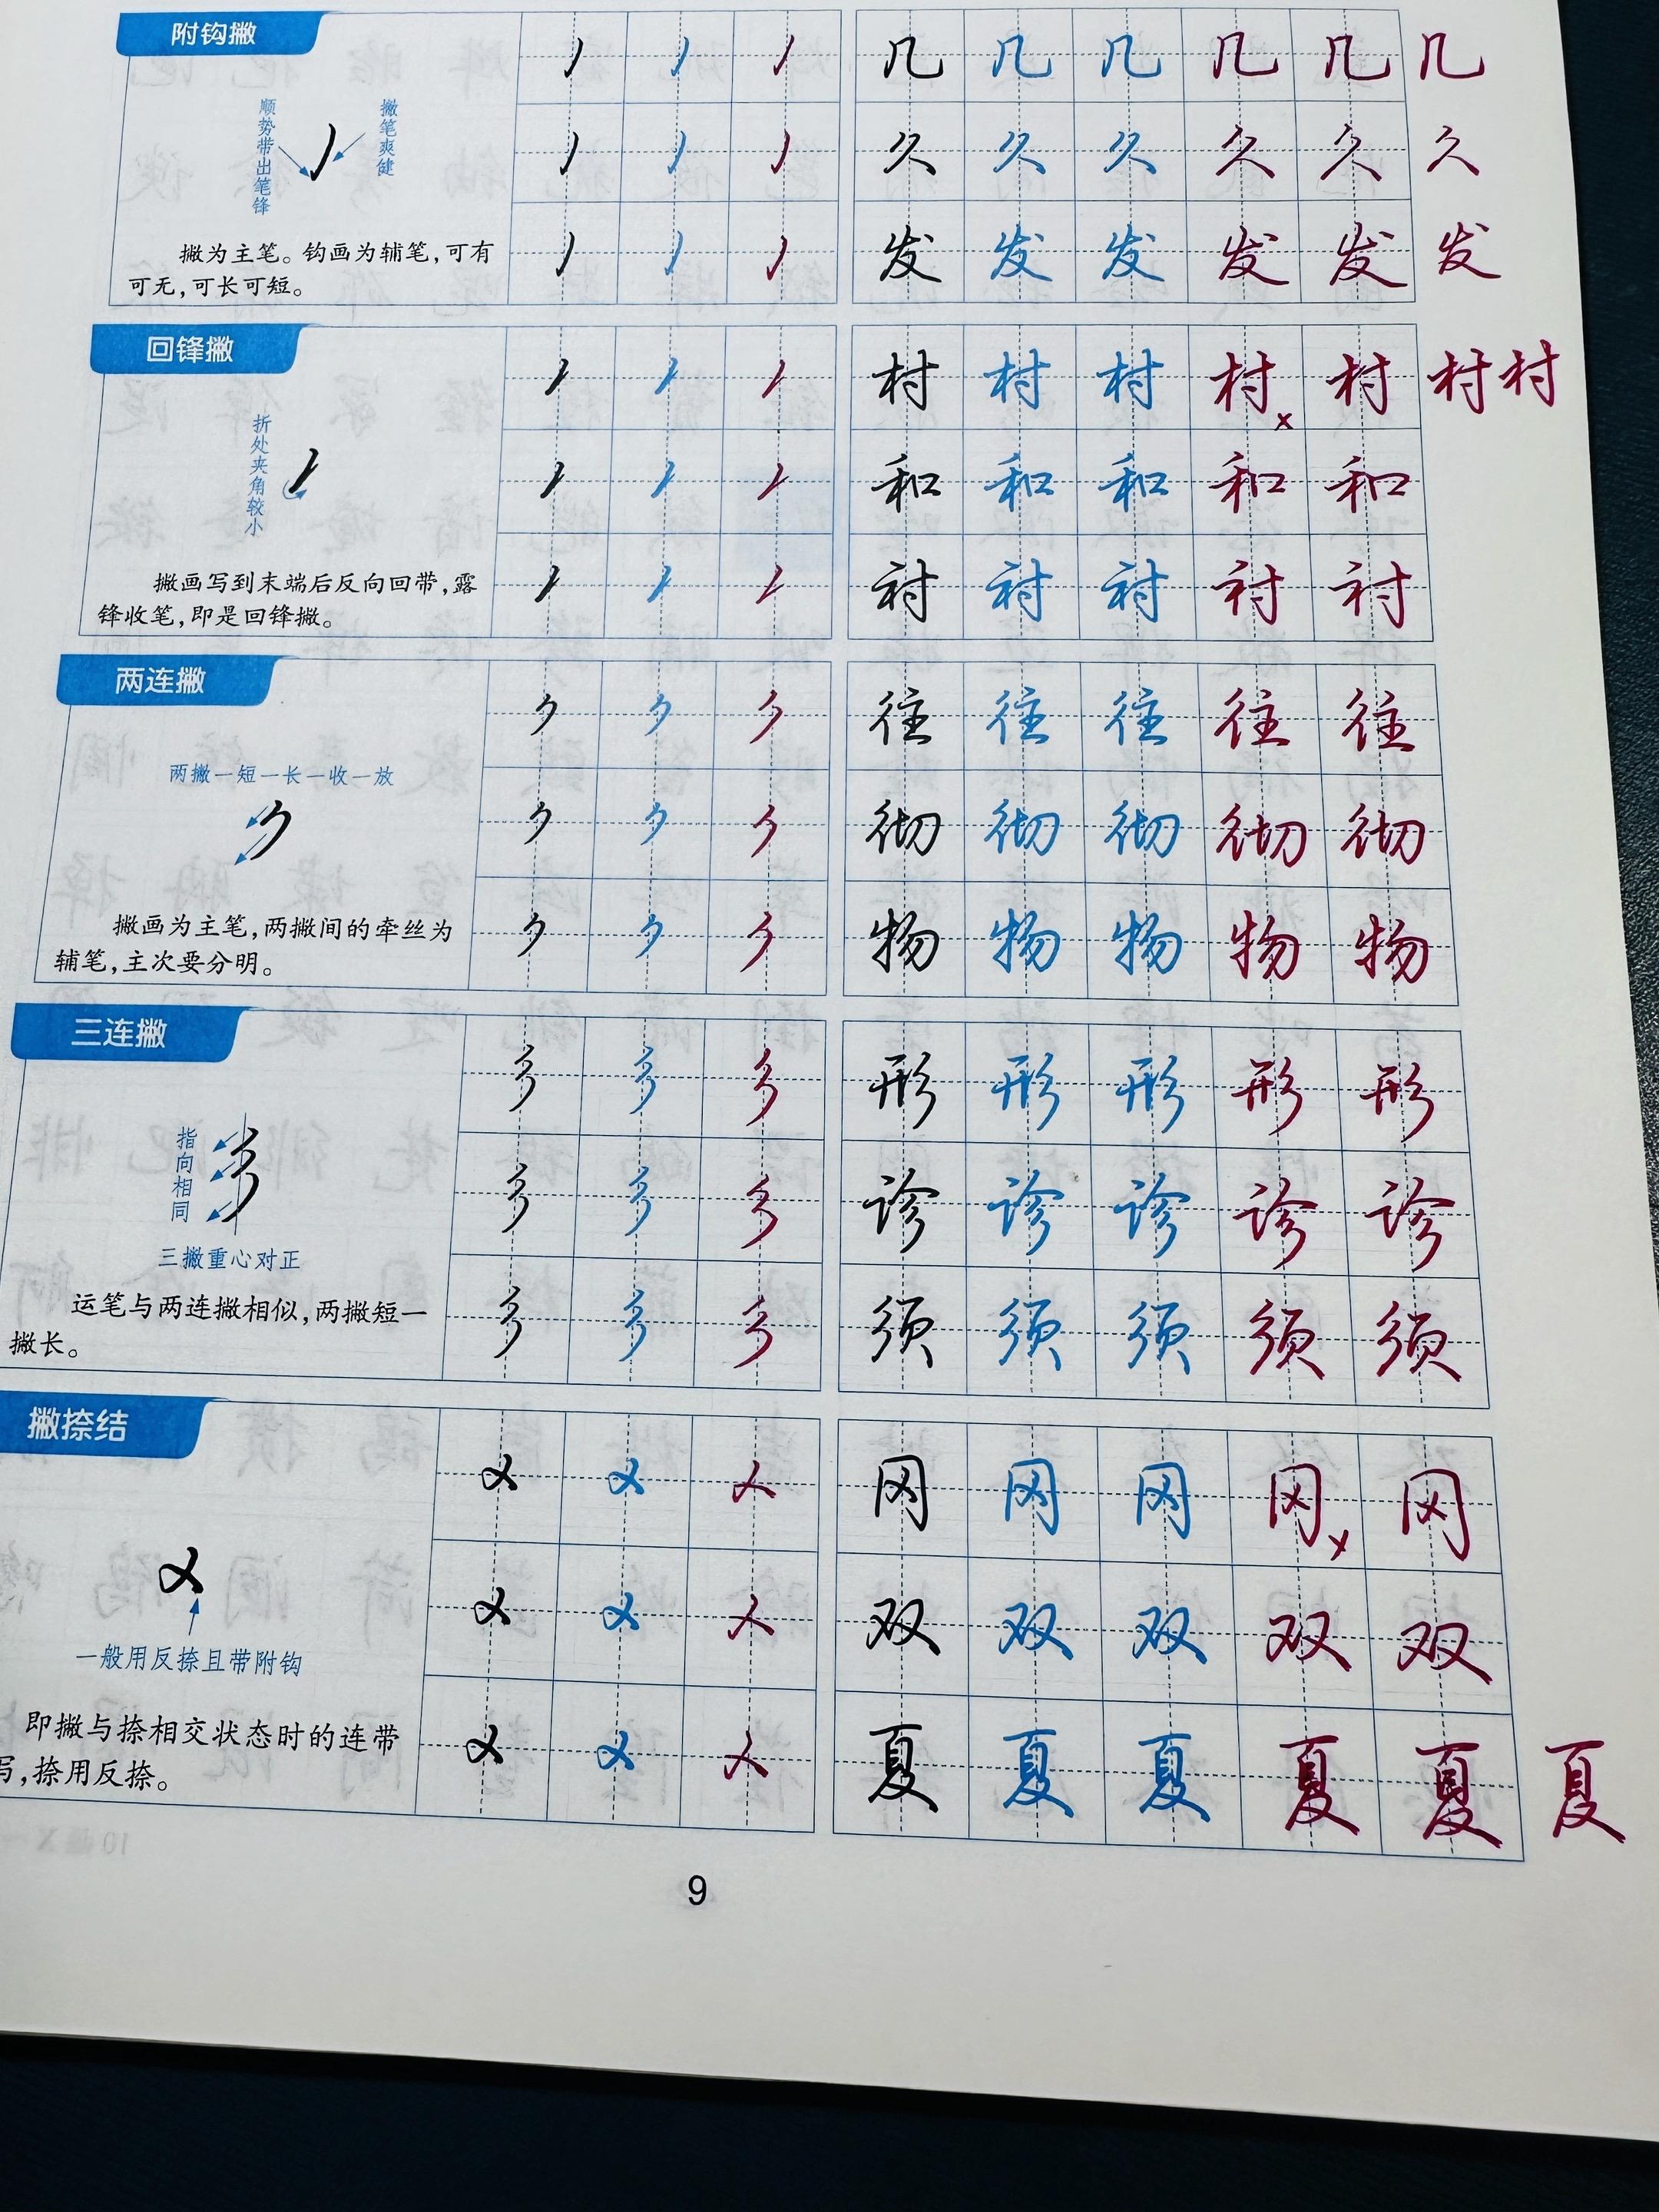 附钩撇
顺势带出笔锋
撇笔爽健
撇为主笔。钩画为辅笔,可有
可无,可长可短。
几 几 几 几 几 几
久 久 久 久 久 久
发 发 发 发 发 发
回锋撇
折处夹角较小
撇画写到末端后反向回带,露
锋收笔,即是回锋撇。
村 村 村 村 x 村 村 村
和 和 和 和 和
衬 衬 衬 衬 衬
两连撇
两撇一短一长一收一放
撇画为主笔,两撇间的牵丝为
辅笔,主次要分明。
往 往 往 往 往
彻 彻 彻 彻 彻
物 物 物 物 物
三连撇
指向相同
三撇重心对正
运笔与两连撇相似,两撇短一
撇长。
形 形 形 形 形
诊 诊 诊 诊 诊
须 须 须 须 须
撇捺结
一般用反捺且带附钩
即撇与捺相交状态时的连带
写,捺用反捺。
冈 冈 冈 冈 x 冈
双 双 双 双 双
夏 夏 夏 夏 夏 夏
9